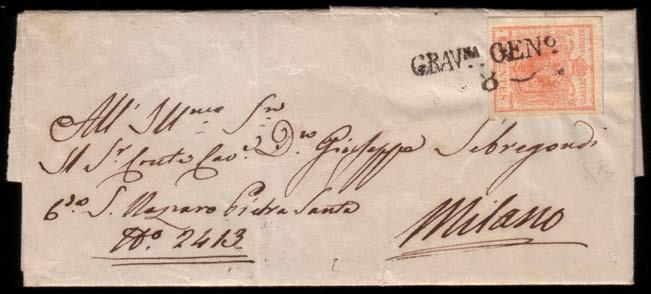 GRAVNA GEN.o
8
All' Ill.mo Sr.
Il Sr. Conte Cav.e D.n Giuseppe Sebregondi
S. Nazaro Pietra Santa
No. 2413
Milano